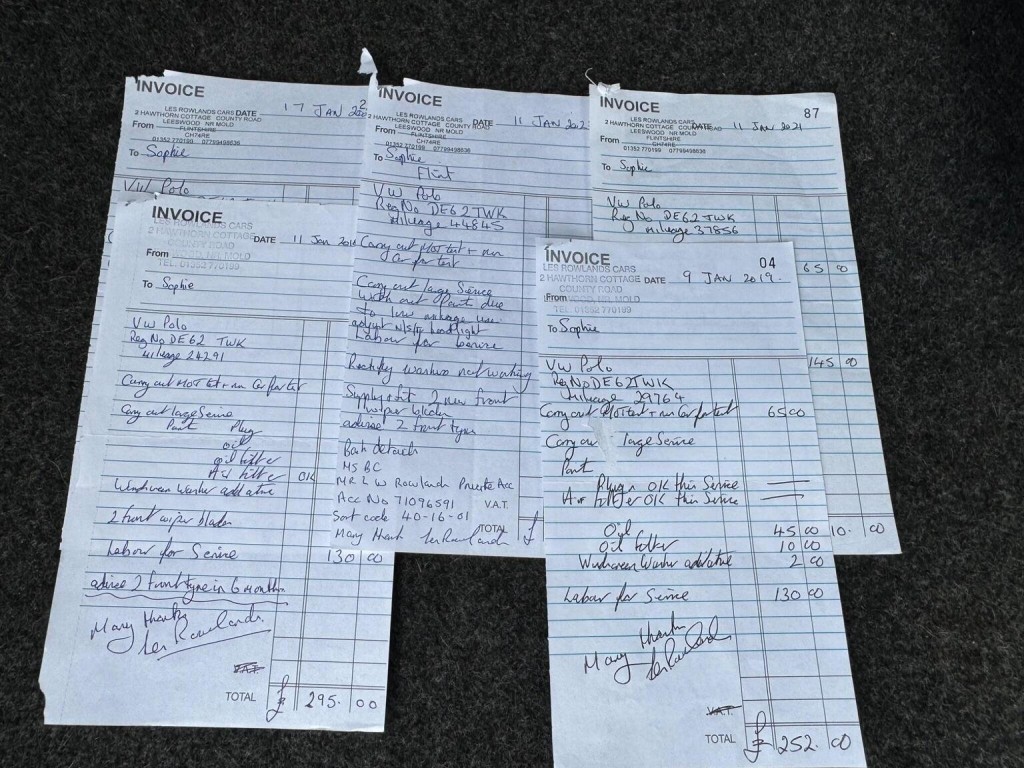 INVOICE
LES ROWLANDS CARS
2 HAWTHORN COTTAGE COUNTY ROAD
LEESWOOD NR MOLD
FLINTSHIRE
CH74RE
01352 770199 07799498636
DATE 17 JAN
From
To Sophie
VW Polo
INVOICE
LES ROWLANDS CARS
2 HAWTHORN COTTAGE COUNTY ROAD
LEESWOOD NR MOLD
FLINTSHIRE
CH74RE
01352 770199 07799498636
DATE 11 JAN 202
From
To Sophie
Flint
VW Polo
Reg No DE62 TWK
Mileage 44845
Carry out MOT test + run
Car for test
Carry out large Service
With out Part due
to low mileage
adjust N/S/F headlight
Labour for Service
Rectify washers not working
Supply & fit 2 new front
Wiper blades
advise 2 front tyres
Bank details
HSBC
MR L W Rowlands Private Acc
Acc No 71096591
Sort code 40-16-01
Many thanks Les Rowlands
V.A.T.
TOTAL £
INVOICE
87
LES ROWLANDS CARS
2 HAWTHORN COTTAGE COUNTY ROAD
LEESWOOD NR MOLD
FLINTSHIRE
CH74RE
01352 770199 07799498636
DATE 11 Jan 2021
From
To Sophie
VW Polo
Reg No DE62 TWK
Mileage 37856
65 00
145 00
10. 00
INVOICE
LES ROWLANDS CARS
2 HAWTHORN COTTAGE
COUNTY ROAD
LEESWOOD, NR. MOLD
TEL: 01352 770199
DATE 11 Jan
From
To Sophie
VW Polo
Reg No DE62 TWK
Mileage 24291
Carry out MOT test + run Car for test
Carry out large Service
Part Plug
oil
oil filter
Air filter OK
Windscreen Washer additive
2 front wiper blades
Labour for Service 130 00
advise 2 front tyre in 6 months
Many thanks
Les Rowlands
V.A.T.
TOTAL £ 295. 00
INVOICE
04
LES ROWLANDS CARS
2 HAWTHORN COTTAGE
COUNTY ROAD
LEESWOOD, NR. MOLD
TEL: 01352 770199
DATE 9 JAN 2019.
From
To Sophie
VW Polo
Reg No DE62 TWK
Mileage 29764
Carry out MOT test + run Car for test 65 00
Carry out large Service
Part
Plugs OK this Service
Air filter OK this Service
Oil 45 00
Oil filter 10 00
Windscreen Washer additive 2 00
Labour for Service 130 00
Many thanks
Les Rowlands
V.A.T.
TOTAL £ 252. 00